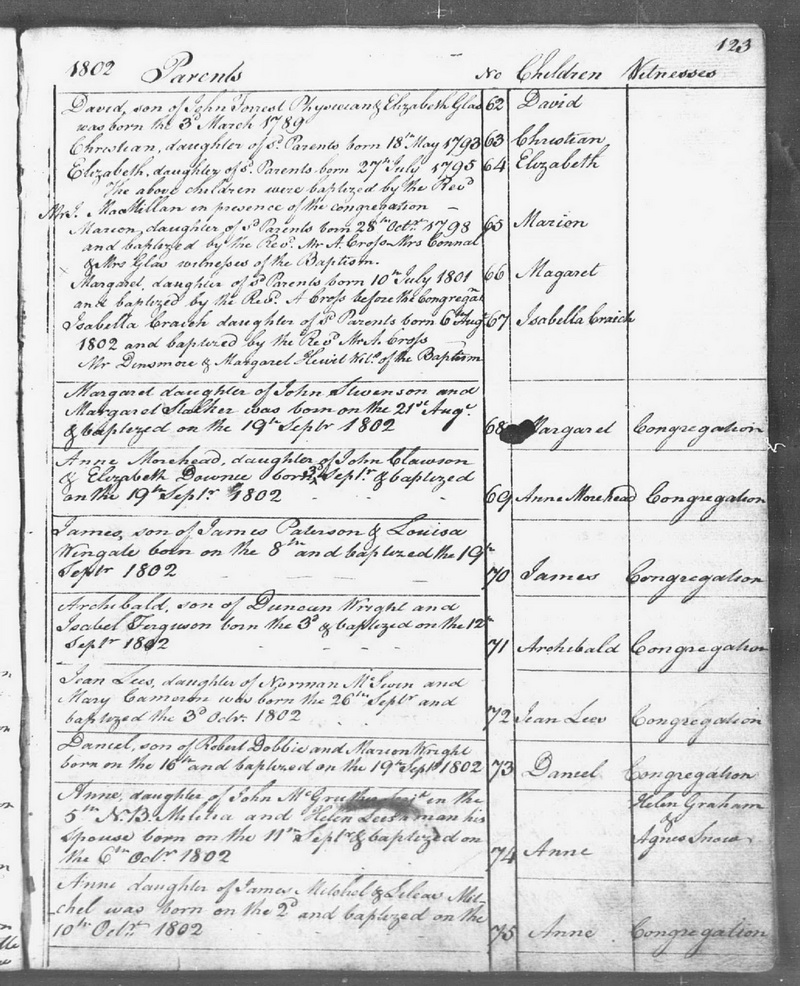 123
1802 Parents No Children Witnesses
David, son of John Forrest Physician & Elizabeth Glas 62 David
was born the 3d March 1789
Christian, daughter of sd Parents born 18th May 1793 63 Christian
Elizabeth, daughter of sd Parents born 27th July 1795 64 Elizabeth
The above children were baptized by the Revd
Mr J. MacMillan in presence of the congregation
Marion, daughter of sd Parents born 28th Octr 1798 65 Marion
and baptized by the Revd. Mr A. Cross Mrs Connal
& Mrs Glas witnesses of the Baptism.
Margaret, daughter of sd Parents born 10th July 1801 66 Magaret
and baptized by the Revd. A Cross before the Congregatn
Isabella Craich daughter of sd Parents born 6th Augt 67 Isabella Craich
1802 and baptized by the Revd Mr A. Cross
Mr Dinsmore & Margaret Hewit Wits. of the Baptism
Margaret daughter of John Stevenson and
Margaret Stalker was born on the 21st Augt.
& baptized on the 19th Septr 1802 68 Margaret Congregation
Anne Morehead, daughter of John Clawson
& Elizabeth Downie born 3d Septr & baptized
on the 19th Septr 1802 69 Anne Morehead Congregation
James, son of James Paterson & Louisa
Wingate born on the 8th and baptized the 19th
Septr 1802 70 James Congregation
Archibald, son of Duncan Wright and
Isabel Ferguson born the 3d & baptized on the 12th
Septr 1802 71 Archibald Congregation
Jean Lees, daughter of Norman McEwin and
Mary Cameron was born the 26th Septr and
baptized the 3d Octr. 1802 72 Jean Lees Congregation
Daniel, son of Robert Dobbie and Marion Wright
born on the 16th and baptized on the 19th Septr 1802 73 Daniel Congregation
Anne, daughter of John in the Helen Graham
5th N.B. Militia and Helen Leishman his &
spouse born on the 11th Septr & baptized on Agnes Snow
the 6th Octr 1802 74 Anne
Anne daughter of James Mitchel & Lileas Mit-
-chel was born on the 2d and baptized on the
10th Octr. 1802 75 Anne Congregation